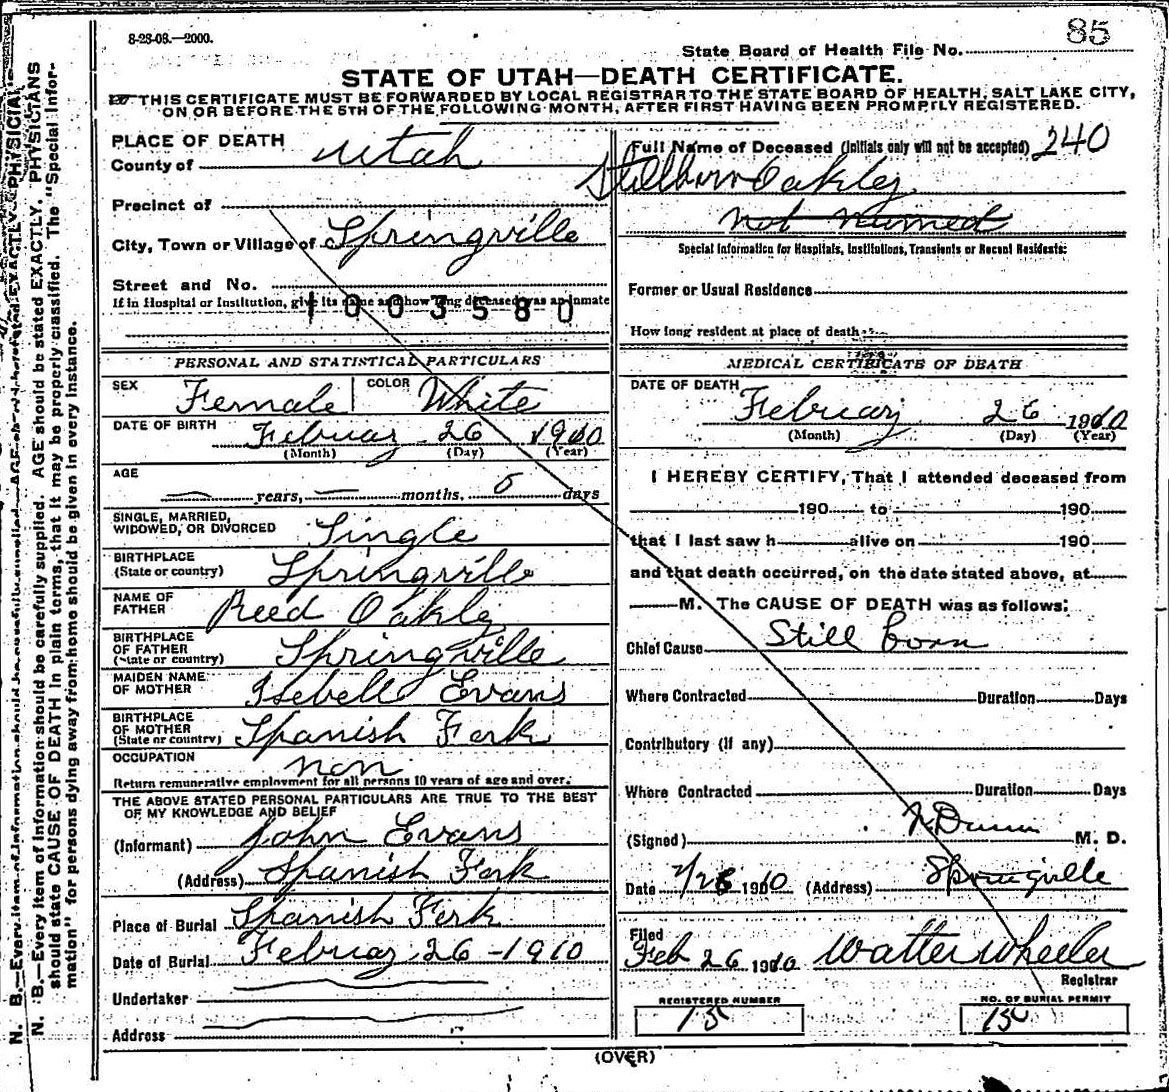 8-28-08.—2000.
85
State Board of Health File No.
STATE OF UTAH—DEATH CERTIFICATE.
THIS CERTIFICATE MUST BE FORWARDED BY LOCAL REGISTRAR TO THE STATE BOARD OF HEALTH, SALT LAKE CITY,
ON OR BEFORE THE 5TH OF THE FOLLOWING MONTH, AFTER FIRST HAVING BEEN PROMPTLY REGISTERED.
PLACE OF DEATH
County of Utah
Precinct of
City, Town or Village of Springville
Street and No.
If in Hospital or Institution, give its name and how long deceased was an inmate
1003580
PERSONAL AND STATISTICAL PARTICULARS
SEX Female COLOR White
DATE OF BIRTH Februay 26 1910
(Month) (Day) (Year)
AGE
years, months, 0 days
SINGLE, MARRIED,
WIDOWED, OR DIVORCED Single
BIRTHPLACE
(State or country) Springville
NAME OF
FATHER Reed Oakley
BIRTHPLACE
OF FATHER
(State or country) Springville
MAIDEN NAME
OF MOTHER Isebell Evans
BIRTHPLACE
OF MOTHER
(State or country) Spanish Fork
OCCUPATION non
Return remunerative employment for all persons 10 years of age and over.
THE ABOVE STATED PERSONAL PARTICULARS ARE TRUE TO THE BEST
OF MY KNOWLEDGE AND BELIEF
(Informant) John Evans
(Address) Spanish Fork
Place of Burial Spanish Fork
Date of Burial Februay 26-1910
Undertaker
Address
Full Name of Deceased (Initials only will not be accepted) 240
Stillborn Oakley
Not Named
Special Information for Hospitals, Institutions, Transients or Recent Residents:
Former or Usual Residence
How long resident at place of death
MEDICAL CERTIFICATE OF DEATH
DATE OF DEATH
Februay 26 1910
(Month) (Day) (Year)
I HEREBY CERTIFY, That I attended deceased from
190 to 190
that I last saw h alive on 190
and that death occurred, on the date stated above, at
M. The CAUSE OF DEATH was as follows:
Chief Cause Still born
Where Contracted Duration Days
Contributory (if any)
Where Contracted Duration Days
(Signed) Dunn M. D.
Date 2/26 1910 (Address) Springville
Filed
Feb 26 1910 Walter Wheeler
Registrar
REGISTERED NUMBER
15
NO. OF BURIAL PERMIT
150
(OVER)
N. B.—Every item of information should be carefully supplied. AGE should be stated EXACTLY. PHYSICIANS
should state CAUSE OF DEATH in plain terms, that it may be properly classified. The "Special Infor-
mation" for persons dying away from home should be given in every instance.